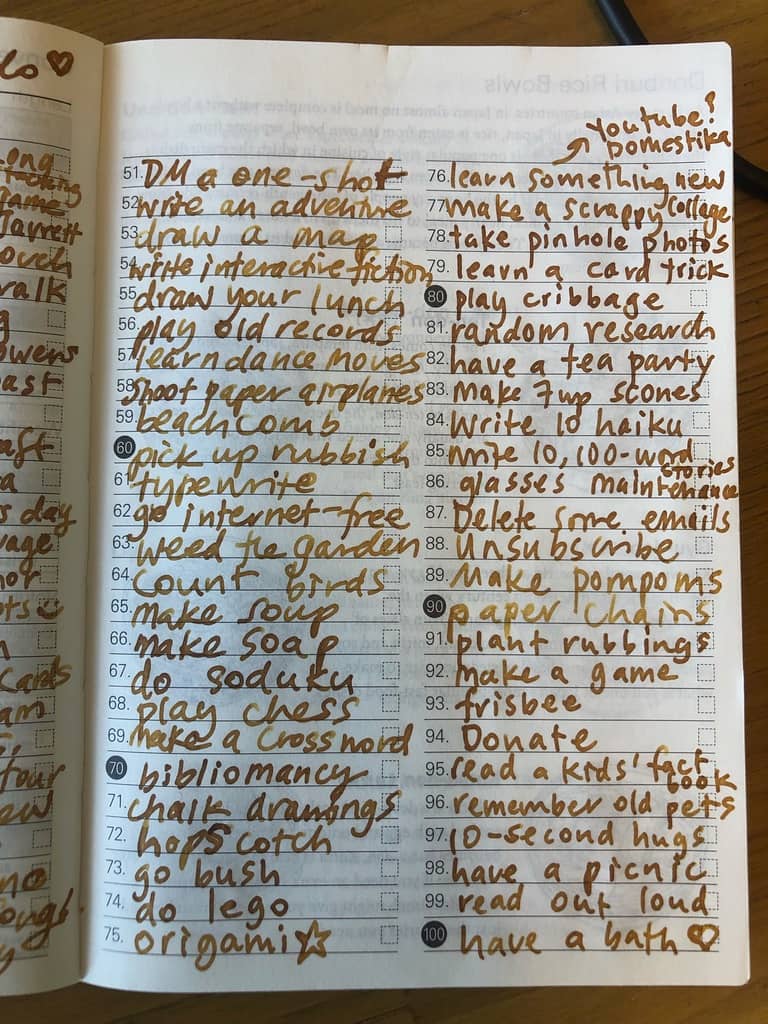 lo ♡
ong
game
Jarrett
walk
owers
east
aft
a
s day
vage
nor
ots
Cards
am
four
ew
no
y
Donburi Rice Bowls
Youtube?
Domestika
51. DM a one-shot
52. write an adventure
53. draw a map
54. write interactive fiction
55. draw your lunch
56. play old records
57. learn dance moves
58. shoot paper airplanes
59. beachcomb
60 pick up rubbish
61. typewrite
62. go internet-free
63. weed the garden
64. count birds
65. make soup
66. make soap
67. do soduku
68. play chess
69. make a crossword
70 bibliomancy
71. chalk drawings
72. hopscotch
73. go bush
74. do lego
75. origami ☆
76. learn something new
77. make a scrappy collage
78. take pinhole photos
79. learn a card trick
80 play cribbage
81. random research
82. have a tea party
83. make 7up scones
84. Write 10 haiku
85. write 10, 100-word
stories
86. glasses maintenance
87. Delete some emails
88. Unsubscribe
89. Make pompoms
90 paper chains
91. plant rubbings
92. make a game
93. frisbee
94. Donate
95. read a kids' fact
book
96. remember old pets
97. 10-second hugs
98. have a picnic
99. read out loud
100 have a bath ♡